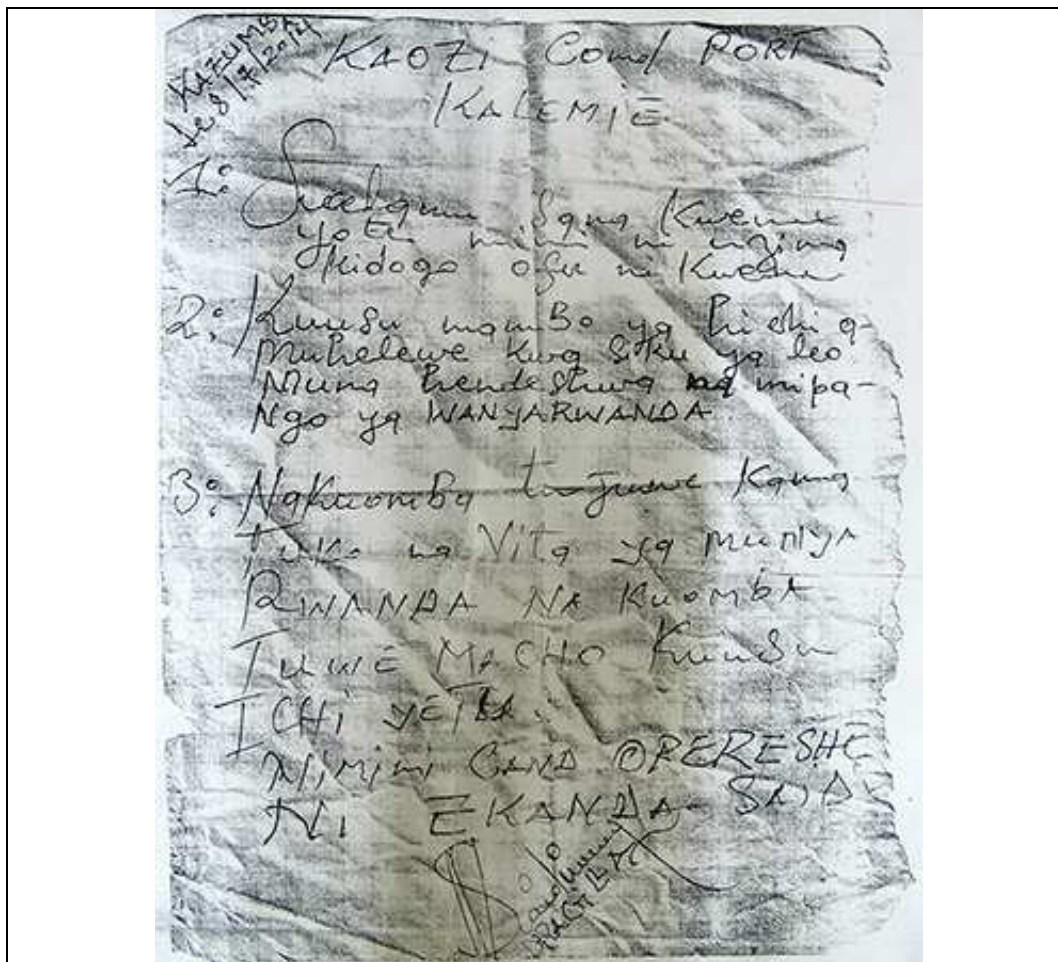 KAZUMBA
le 8/7/2014
KAOZI Comd PORT
KALEMIE
1: Sana Kwenu
yote mimi ni mzima
Kidogo ofu ni Kwenu
2: Kuusu mamBo ya hichi a-
Muhelewe kwa siku ya leo
Muna hendeshwa na mipa-
Ngo ya WANyARWANDA
3: NaKuomBa tujuwe Kama
Tuko na Vita ya MuNyA
RWANDA NA Kuomba
TuwE MACHO Kuusu
ICHI yETu.
Nimimi Cmd OPERESHE
Ni EKANDA SAID